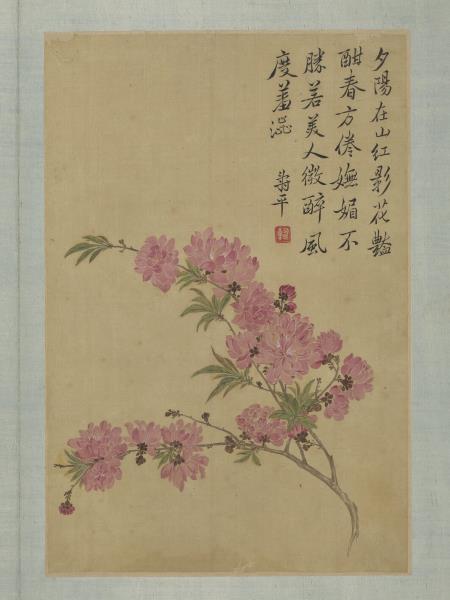 夕陽在山红影花豔
酣春方倦嫵媚不
勝若美人微醉風
度羞澁
壽平